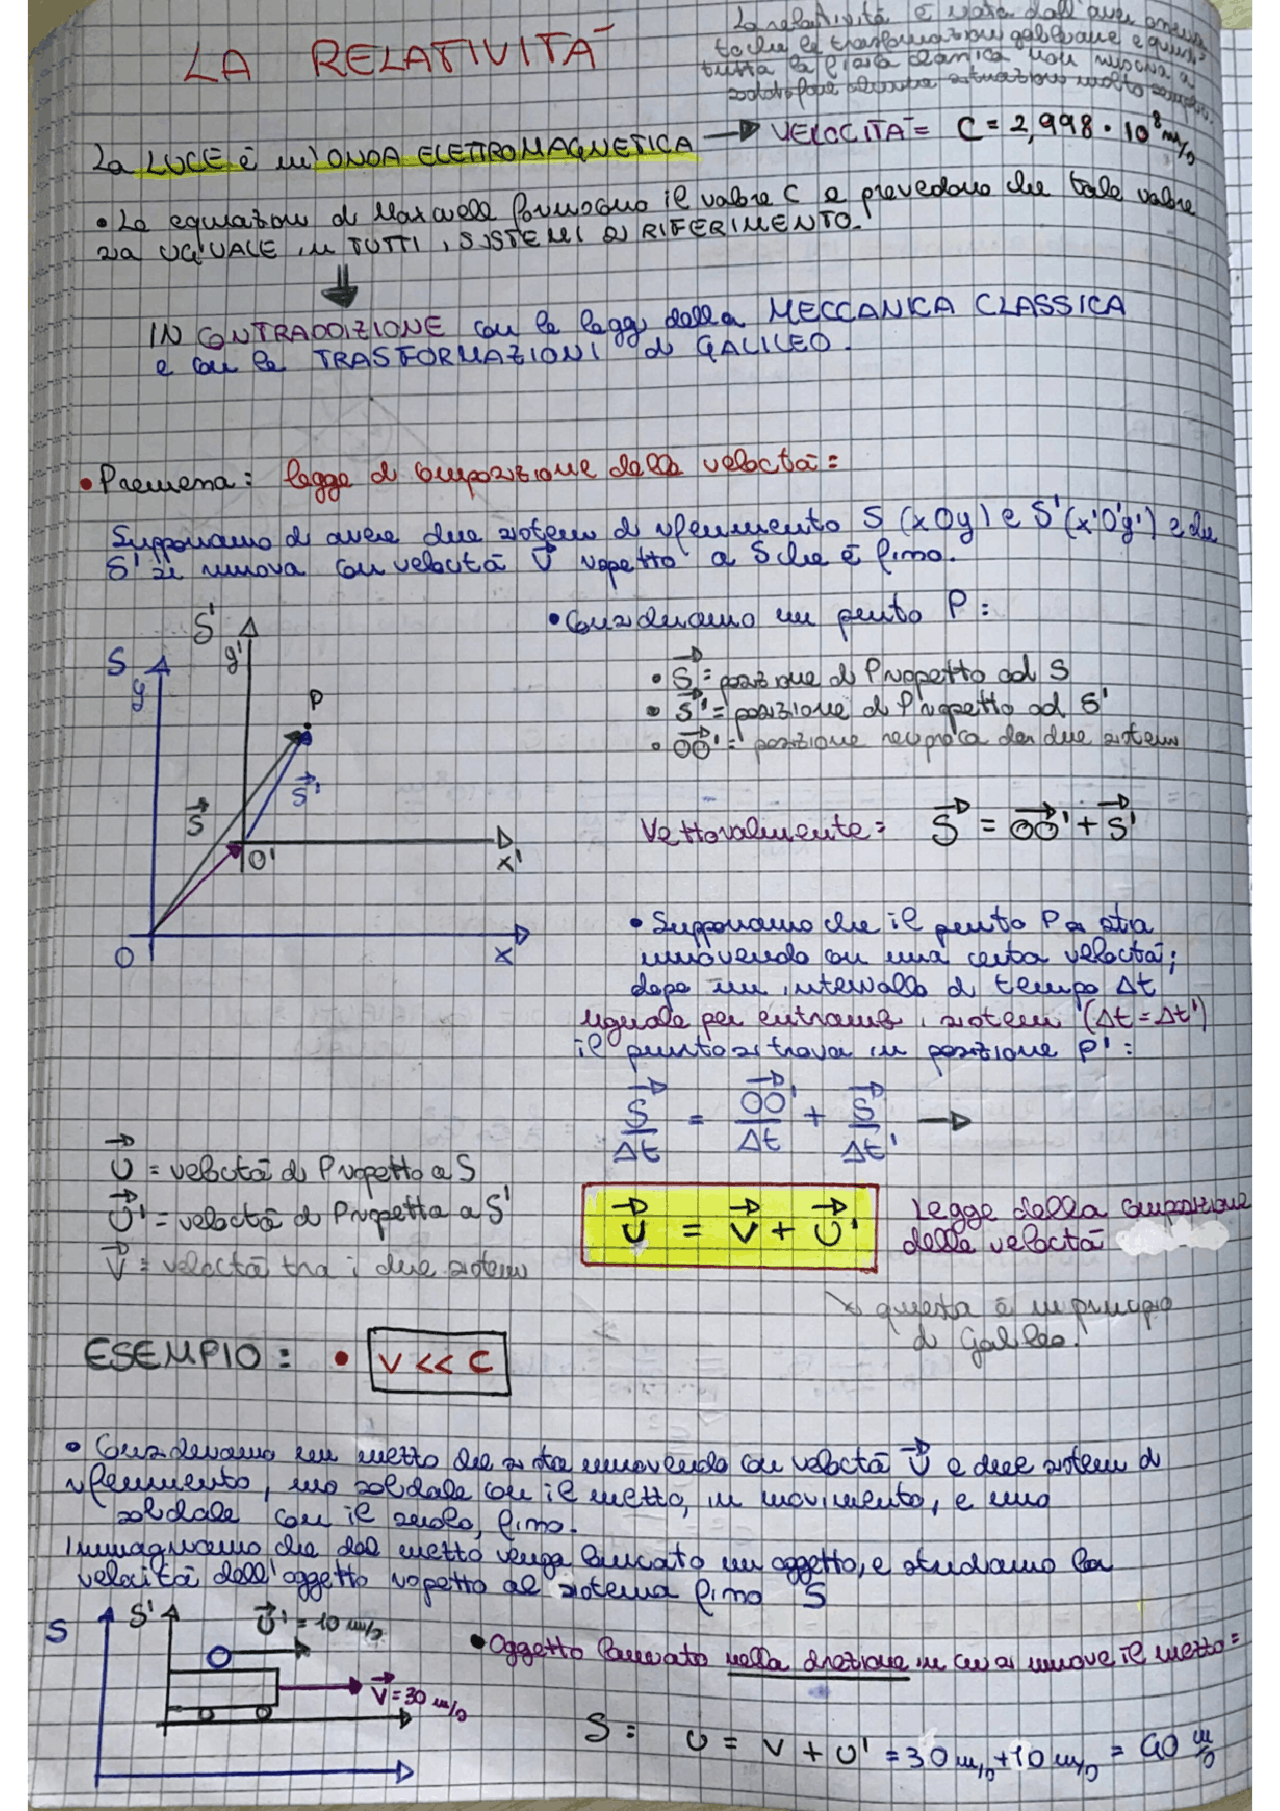 LA RELATIVITA'
La relatività è nata dall'aver
to che le trasformazioni galileiane e quindi
tutta la fisica classica non riusciva a
soddisfare alcune situazioni molto semplici.
La LUCE è un'ONDA ELETTROMAGNETICA → VELOCITA' = C = 2,998 · 10⁸ m/s
• Le equazioni di Maxwell forniscono il valore C e prevedono che tale valore
sia UGUALE in TUTTI i SISTEMI DI RIFERIMENTO.
⇓
IN CONTRADDIZIONE con le leggi della MECCANICA CLASSICA
e con le TRASFORMAZIONI di GALILEO.
• Premessa: legge di composizione delle velocità:
Supponiamo di avere due sistemi di riferimento S (xOy) e S' (x'O'y') e che
S' si muova con velocità V⃗ rispetto a S che è fisso.
• Consideriamo un punto P:
S'
y'
S
y
P
• S⃗ = posizione di P rispetto ad S
• S⃗' = posizione di P rispetto ad S'
• OO⃗' = posizione reciproca dei due sistemi
S⃗'
S⃗
Vettorialmente: S⃗ = OO⃗' + S⃗'
O'
x'
O
x
• Supponiamo che il punto P si stia
muovendo con una certa velocità;
dopo un intervallo di tempo Δt
uguale per entrambi i sistemi (Δt = Δt')
il punto si trova in posizione P':
S⃗/Δt = OO⃗'/Δt + S⃗/Δt' →
U⃗ = velocità di P rispetto a S
U⃗' = velocità di P rispetto a S'
V⃗ = velocità tra i due sistemi
U⃗ = V⃗ + U⃗'
Legge della composizione
delle velocità
↘ questa è un principio
di Galileo.
ESEMPIO: • V << C
• Consideriamo un mezzo che si sta muovendo con velocità V⃗ e due sistemi di
riferimento, uno solidale con il mezzo, in movimento, e uno
solidale con il suolo, fisso.
Immaginiamo che dal mezzo venga lanciato un oggetto, e studiamo la
velocità dell'oggetto rispetto al sistema fisso S
S
S'
U⃗' = 10 m/s
V⃗ = 30 m/s
• Oggetto lanciato nella direzione in cui si muove il mezzo:
S: U = V + U' = 30 m/s + 10 m/s = 40 m/s